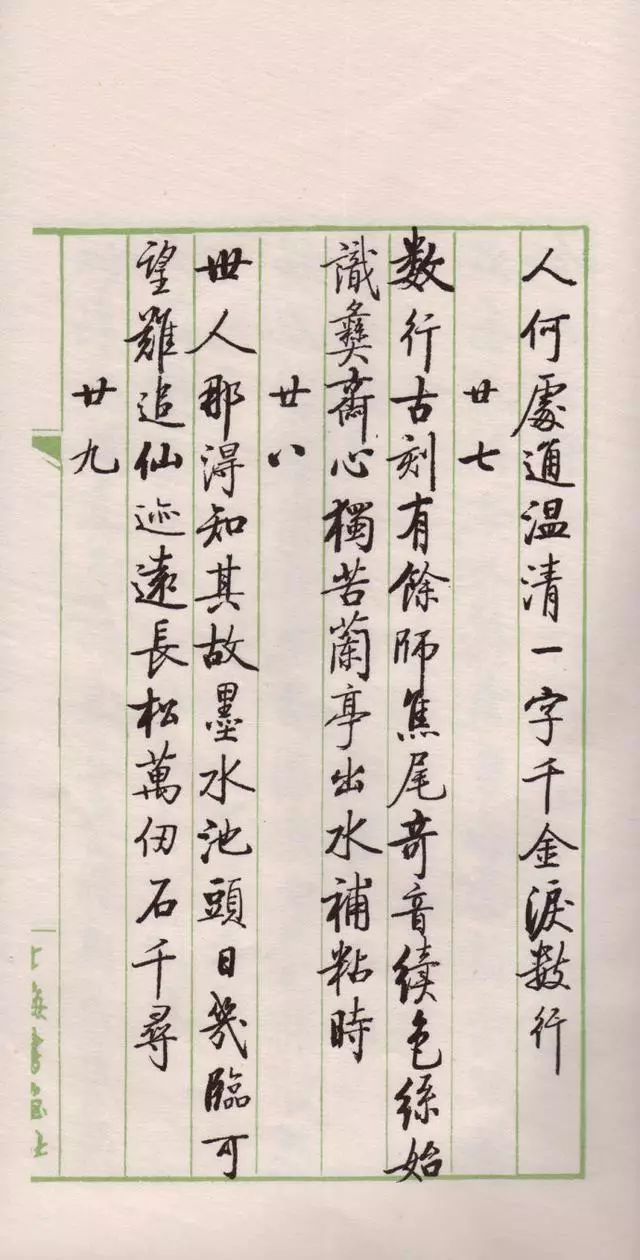 人何處通温清一字千金淚数行
廿七
数行古刻有餘師焦尾奇音續色絲始
識彝齋心獨苦蘭亭出水補粘時
廿八
世人那得知其故墨水池頭日幾臨可
望難追仙迹遠長松萬仞石千尋
廿九